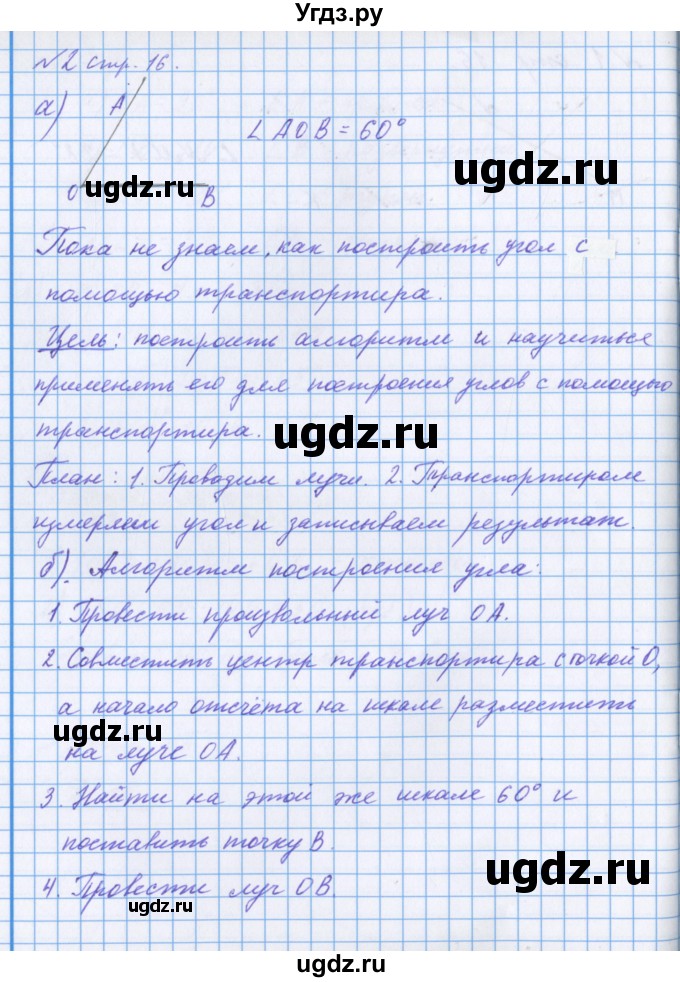 Угдз.ру
№2 стр. 16.
а)
A
∠AOB = 60°
O
ugdz.ru
B
ugdz.ru
Пока не знаем, как построить угол с
помощью транспортира.
Цель: построить алгоритм и научиться
применять его для построения углов с помощью
транспортира.
ugdz.ru
План: 1. Проводим лучи. 2. Транспортиром
измеряем угол и записываем результат.
б). Алгоритм построения угла:
1. Провести произвольный луч OA.
2. Совместить центр транспортира с точкой O,
а начало отсчёта на шкале разместить
ugdz.ru
на луче OA.
3. Найти на этой же шкале 60° и
поставить точку B.
ugdz.ru
4. Провести луч OB
ugdz.ru
ugdz.ru